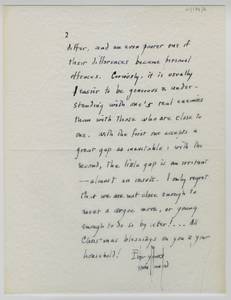 2
differ, and an even poorer one if
their differences become personal
offences. Curiously, it is usually
easier to be generous & under-
standing with one's real enemies
than with those who are close to
one. With the first one accepts a
great gap as inevitable; with the
second, the little gap is an irritant
—almost an insult. I only regret
that we are not close enough to
meet & argue more, or young
enough to do so by letter!... All
Christmas blessings on you & your
household! Ever yours